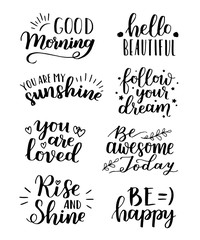 GOOD
Morning
hello
BEAUTIFUL
YOU ARE MY
sunshine
follow
your
dream
you
are
loved
Be
awesome
Today
Rise
AND
Shine
BE =)
happy